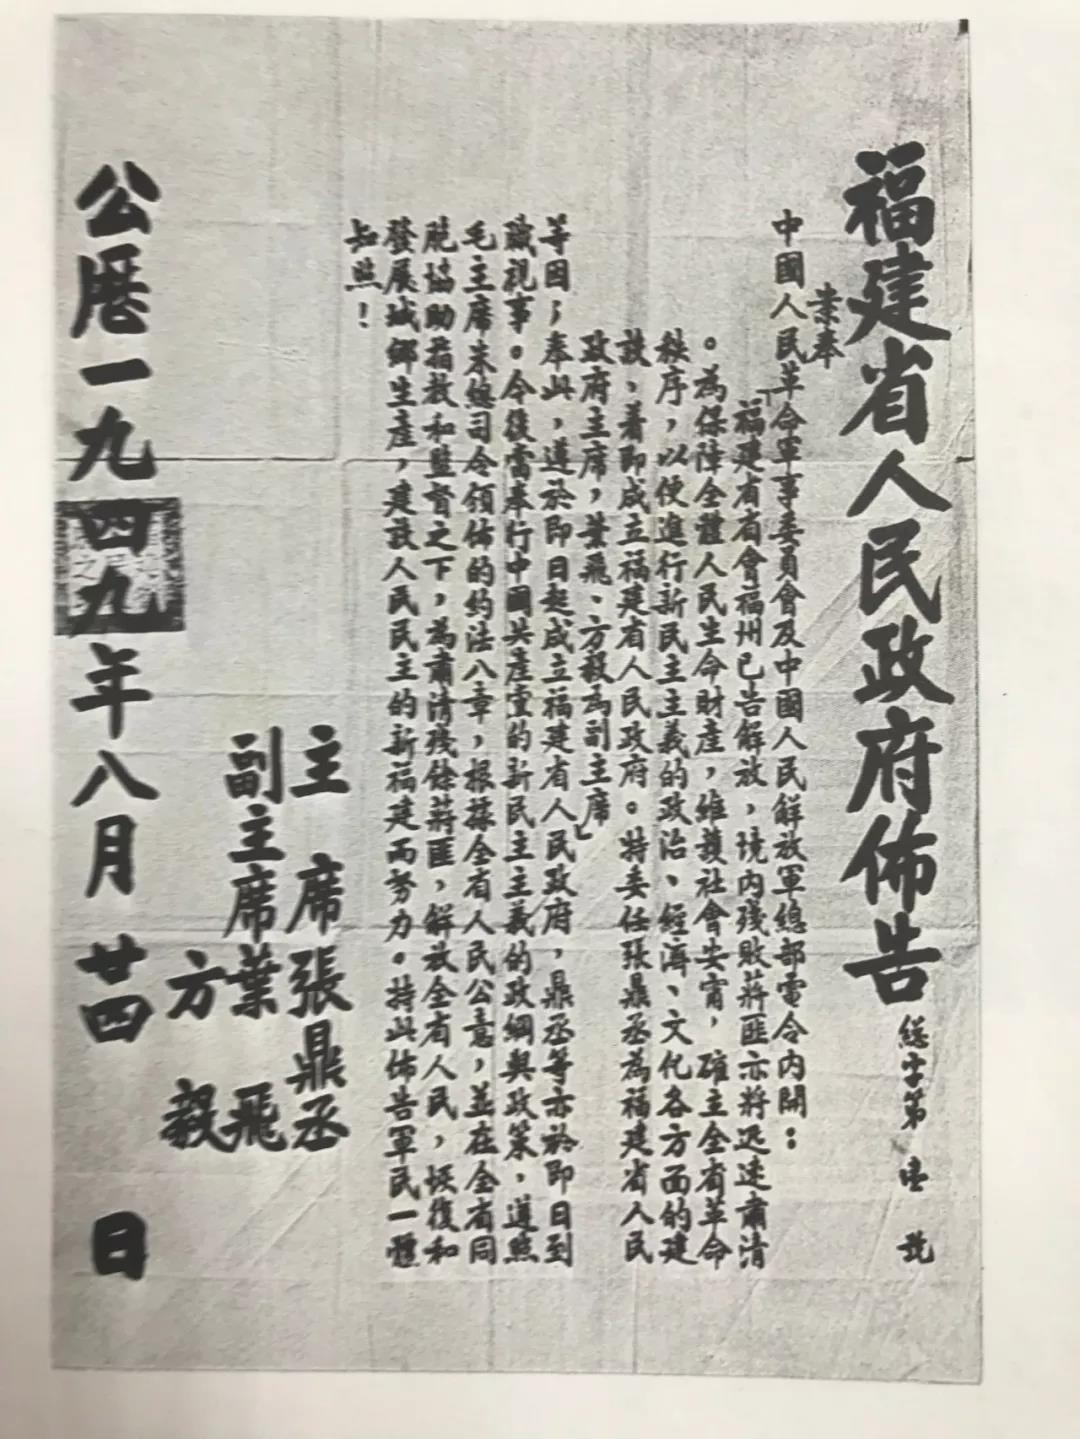 福建省人民政府佈告
總字第壹號
案奉
中國人民革命軍事委員會及中國人民解放軍總部電令內開：
「福建省省會福州已告解放，境內殘敗蔣匪亦將迅速肅清
。為保障全體人民生命財產，維護社會安甯，確主全省革命
秩序，以便進行新民主主義的政治、經濟、文化各方面的建
設，着即成立福建省人民政府。特委任張鼎丞為福建省人民
政府主席，葉飛、方毅為副主席」
等因；奉此，遵於即日起成立福建省人民政府，鼎丞等亦於即日到
職視事。今後當奉行中國共產黨的新民主主義的政綱與政策，遵照
毛主席朱總司令頒佈的約法八章，根據全省人民公意，並在全省同
胞協助指教和監督之下，為肅清殘餘蔣匪，解放全省人民，恢復和
發展城鄉生產，建設人民民主的新福建而努力。特此佈告軍民一體
知照！
主席張鼎丞
副主席葉飛
方毅
公曆一九四九年八月廿四日